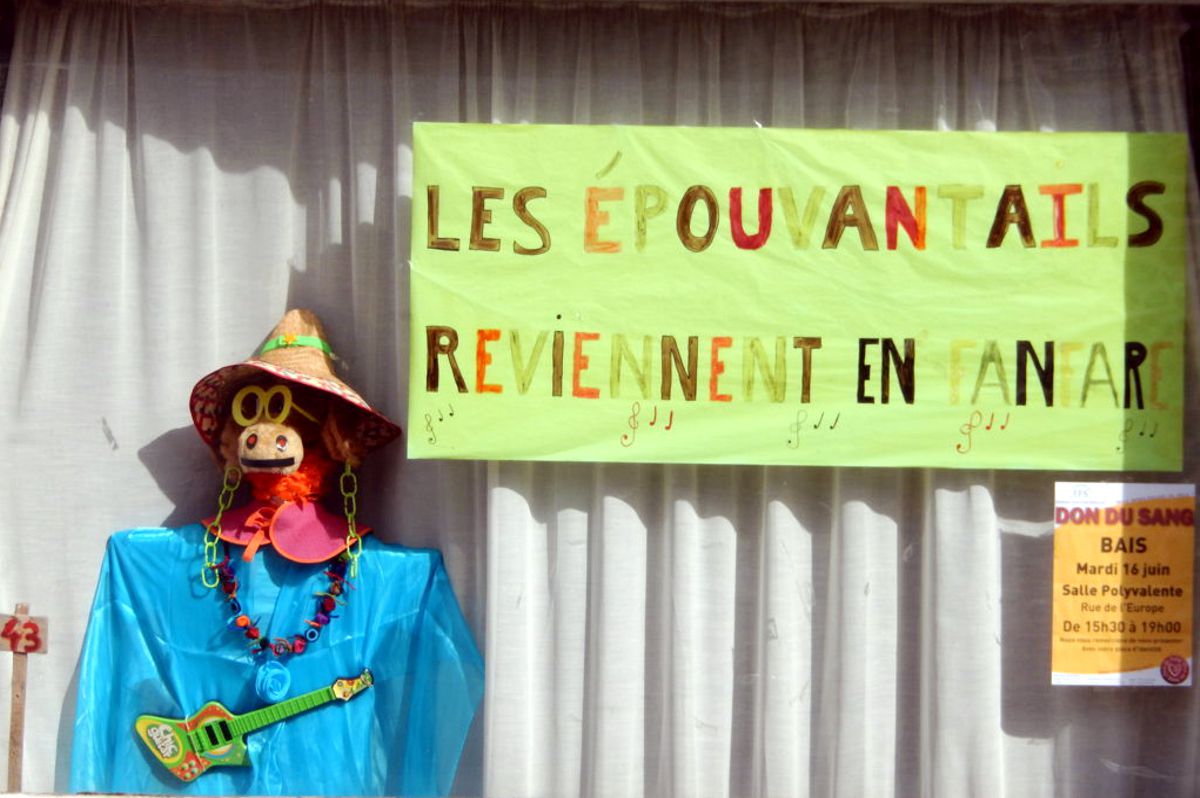 LES ÉPOUVANTAILS
REVIENNENT EN FANFARE
43
DON DU SANG
BAIS
Mardi 16 juin
Salle Polyvalente
Rue de l'Europe
De 15h30 à 19h00